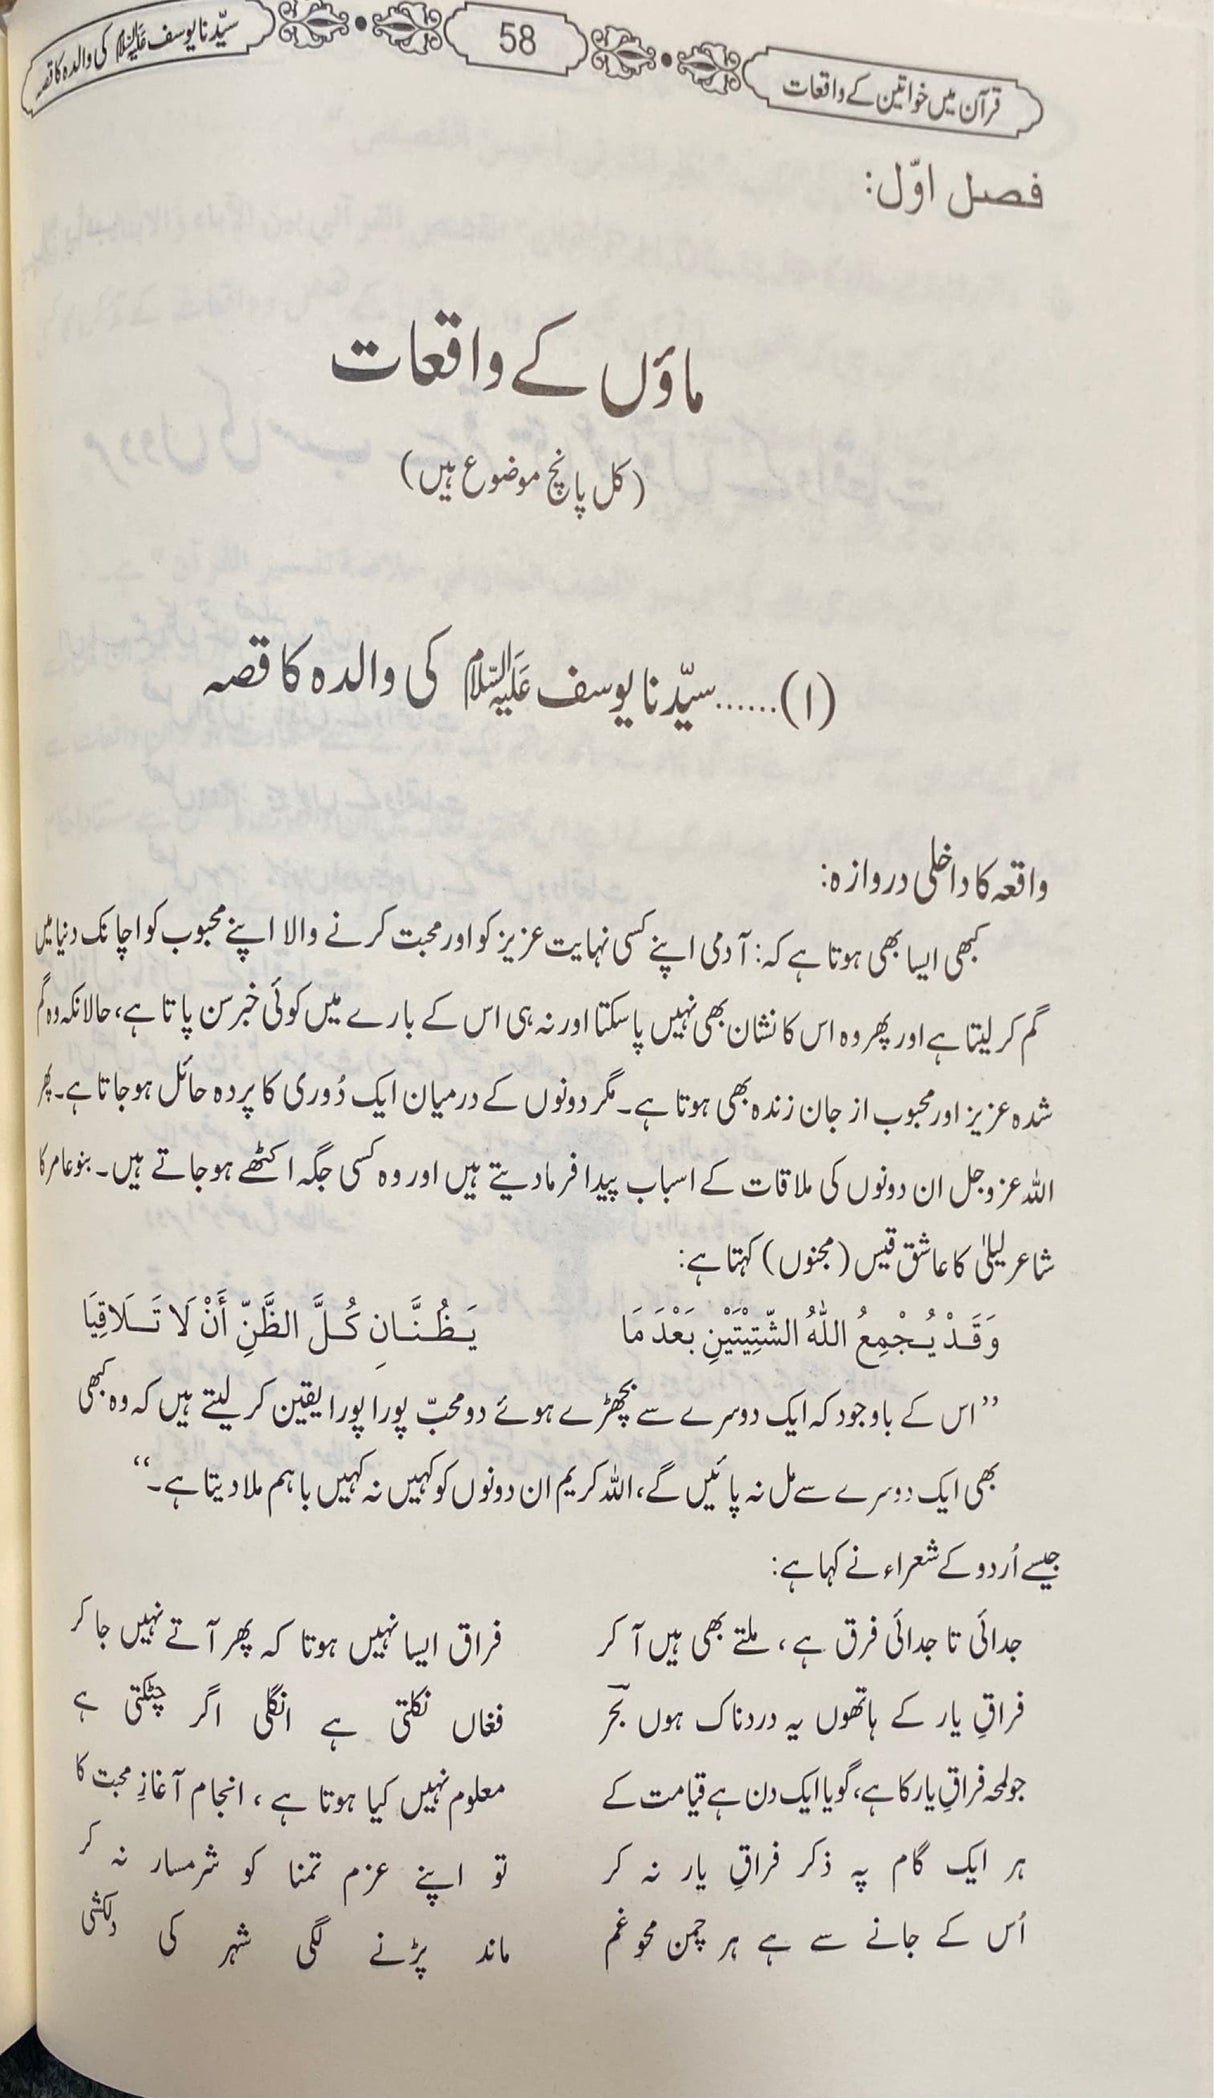 قرآن میں خواتین کے واقعات 58 سیّدنا یوسف عَلَیْہِ السَّلَام کی والدہ کا قصہ
فصل اوّل:
ماؤں کے واقعات
(کل پانچ موضوع ہیں)
(۱)......سیّدنا یوسف عَلَیْہِ السَّلَام کی والدہ کا قصہ
واقعہ کا داخلی دروازہ:
کبھی ایسا بھی ہوتا ہے کہ: آدمی اپنے کسی نہایت عزیز کو اور محبت کرنے والا اپنے محبوب کو اچانک دنیا میں
گم کر لیتا ہے اور پھر وہ اس کا نشان بھی نہیں پا سکتا اور نہ ہی اس کے بارے میں کوئی خبر سن پاتا ہے، حالانکہ وہ گم
شدہ عزیز اور محبوب از جان زندہ بھی ہوتا ہے۔ مگر دونوں کے درمیان ایک دُوری کا پردہ حائل ہو جاتا ہے۔ پھر
اللہ عزوجل ان دونوں کی ملاقات کے اسباب پیدا فرما دیتے ہیں اور وہ کسی جگہ اکٹھے ہو جاتے ہیں۔ بنو عامر کا
شاعر لیلیٰ کا عاشق قیس (مجنوں) کہتا ہے:
وَقَدْ یُجْمِعُ اللّٰہُ الشَّتِیْتَیْنِ بَعْدَ مَا یَظُنَّانِ کُلَّ الظَّنِّ أَنْ لَا تَلَاقِیَا
’’اس کے باوجود کہ ایک دوسرے سے بچھڑے ہوئے دو محبّ پورا پورا یقین کر لیتے ہیں کہ وہ کبھی
بھی ایک دوسرے سے مل نہ پائیں گے، اللہ کریم ان دونوں کو کہیں نہ کہیں باہم ملا دیتا ہے۔‘‘
جیسے اُردو کے شعراء نے کہا ہے:
جدائی تا جدائی فرق ہے، ملتے بھی ہیں آ کر فراق ایسا نہیں ہوتا کہ پھر آتے نہیں جا کر
فراقِ یار کے ہاتھوں یہ دردناک ہوں بحرؔ فغاں نکلتی ہے انگلی اگر چٹکتی ہے
جو لمحہ فراقِ یار کا ہے، گویا ایک دن ہے قیامت کے معلوم نہیں کیا ہوتا ہے، انجام آغازِ محبت کا
ہر ایک گام پہ ذکر فراقِ یار نہ کر تو اپنے عزم تمنا کو شرمسار نہ کر
اُس کے جانے سے ہے ہر چمن محو غم ماند پڑنے لگی شہر کی دلکشی